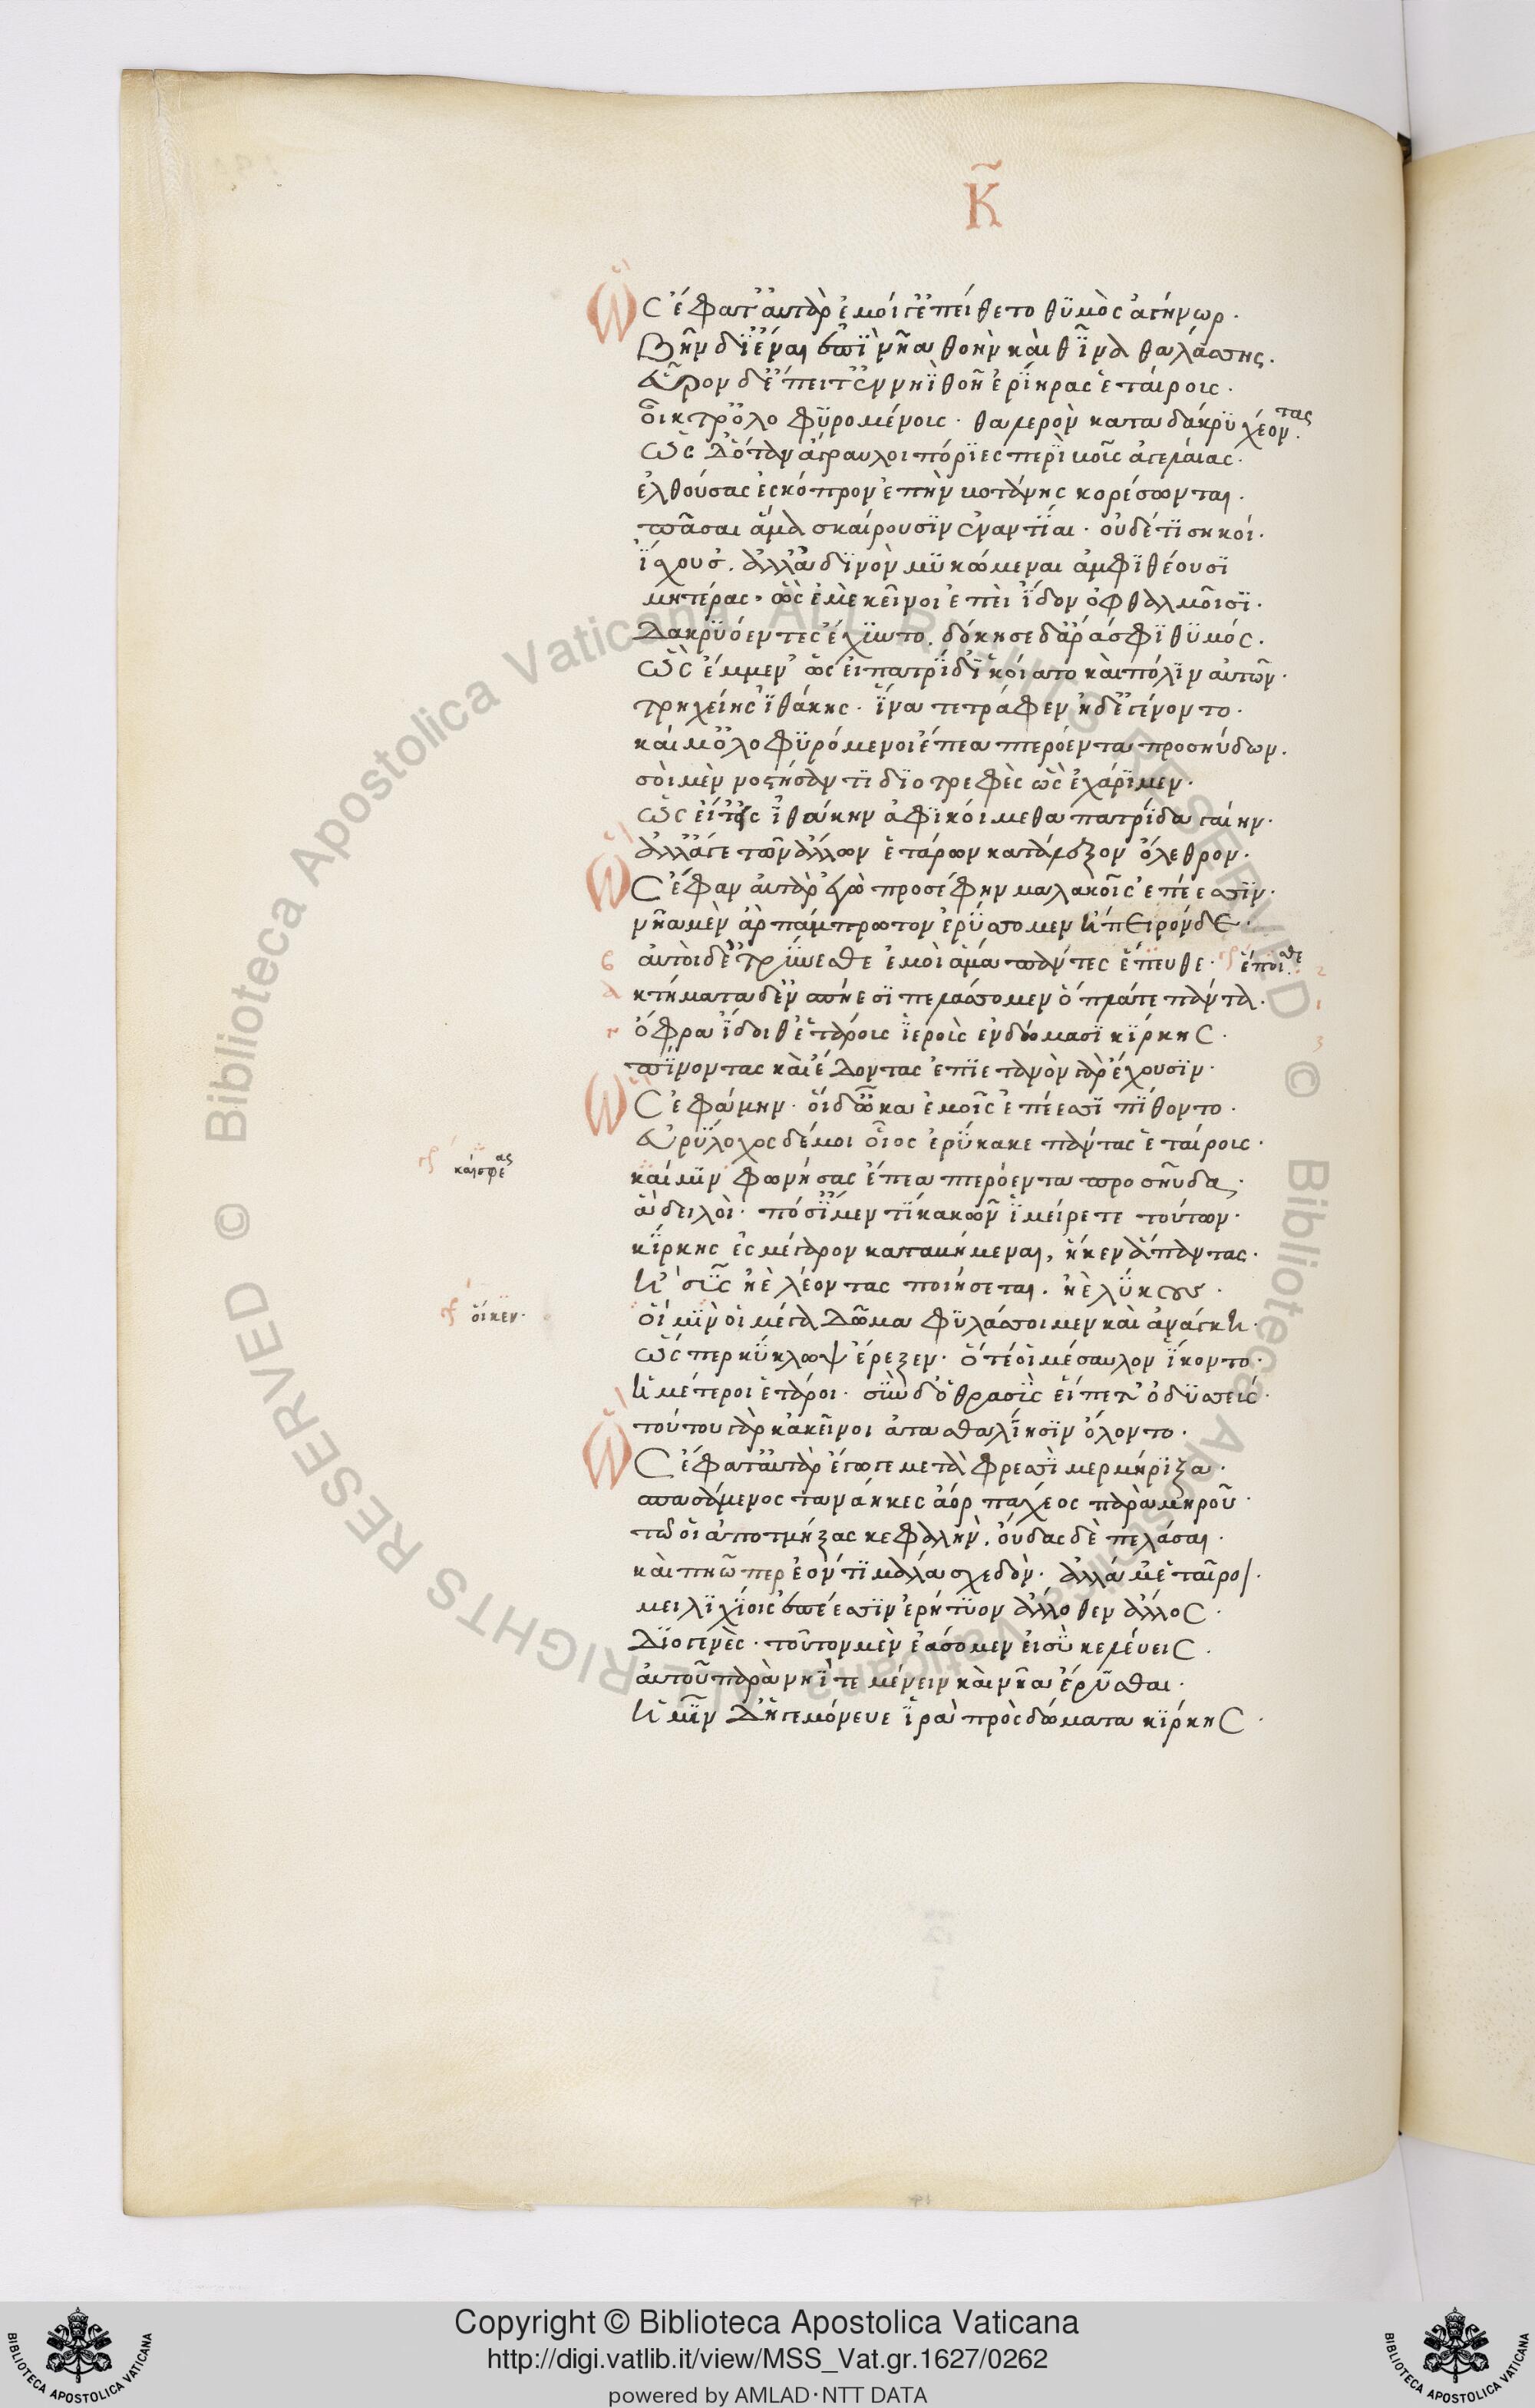 Κ̃
Ὣς ἔφατ' ἀυτὰρ ἐμοί γ' ἐπείθετο θϋμὸς ἀγήνωρ·
Βῆν δ' ϊέναι ἐπῒ νῆα θοὴν καὶ θῖνα θαλάσσης·
ἑῦρον δ' ἔπειτ' ἐν νηῒ θοῆ ἐρΐηρας ἑταίροις·
ὄικτρ' ὀλοφϋρομένοις· θαλερὸν κατα δάκρϋ χέοντας·
ὡς δ' ὅταν ἄγραυλοι πόρϊες περῒ βοῦς ἀγελάιας·
ἐλθούσας ἐς κόπρον ἐπὴν βοτάνης κορέσωνται·
πᾶσαι ἅμα σκαίρουσϊν ἐναντΐαι· οὐδέτϊ σηκόι·
ΐσχουσ'. ἀλλ' ἁδϊνὸν μϋκώμεναι ἀμφϊθέουσϊ
μητέρας· ὣς ἐμὲ κεῖνοι ἐπεὶ ΐδον ὀφθαλμοῖσϊ·
Δακρϋόεντες ἔχϋντο. δόκησε δ' ἄρά σφϊ θϋμός·
Ὣς ἔμμεν' ὡς ἐι πατρΐδ' ΐκόιατο καὶ πόλϊν ἀυτῶν·
τρηχείης ϊθάκης· ΐνα τετράφεν ἠδ' ἐγένοντο·
καί μ' ὀλοφϋρόμενοι ἔπεα πτερόεντα προσηύδων·
σὸι μὲν νοστήσαντϊ δϊοτρεφὲς ὣς ἐχάρϊμεν·
ὡς εἴ τ' ἐς ϊθάκην ἀφϊκόιμεθα πατρΐδα γαίην·
ἀλλ' ἄγε τῶν ἄλλων ἑτάρων κατάλεξον ὄλεθρον·
Ὣς ἔφαν ἀυτὰρ ἐγὼ προσέφην μαλακοῖς ἐπέεσσϊν·
νῆα μὲν ἂρ πάμπρωτον ἐρΰσσομεν ἤπειρόνδε·
β ἀυτὸι δ' ὀτρΰνεσθε ἐμοὶ ἅμα πάντες ἕπευθε· γρ ἕποισθε 2
α κτήματα δ' ἐν σπήεσϊ πελάσσομεν ὅπλά τε πάντα· 1
γ ὄφρα ΐδοιθ' ἑτάροις ϊεροῖς ἐν δώμασϊ κΐρκης· 3
πΐνοντας καὶ ἔδοντας ἐπϊετανὸν γὰρ ἔχουσϊν·
Ὣς ἐφάμην· ὅι δ' ὦκα ἐμοῖς ἐπέεσσϊ πΐθοντο·
ἐυρΰλοχος δέ μοι ὄιος ἐρΰκακε πάντας ἑταίροις·
γρ καί σφεας
καί μϊν φωνήσας ἔπεα πτερόεντα προσηυδα·
ἆ δειλὸι· πόσ' ΐμεν τΐ κακῶν ϊμείρετε τούτων·
κΐρκης ἐς μέγαρον καταβήμεναι, ἥ κεν ἅπαντας·
ἢ σϋς ἠὲ λέοντας ποιήσεται. ἠὲ λΰκους·
γρ ὅι κεν·
ὅι μϊν ὁι μέγα Δῶμα φϋλάσσοιμεν καὶ ἀνάγκη·
ὥς περ κΰκλωψ ἔρξεν· ὅτέ ὁι μέσαυλον ΐκοντο·
ἡμέτεροι ἑτάροι· σϋν δ' ὁ θρασϋς εἵπετ' ὀδϋσσεύς·
τούτου γὰρ κἀκεῖνοι ἀτασθαλΐησϊν ὄλοντο·
Ὣς ἔφατ' ἀυτὰρ ἔγωγε μετὰ φρεσσῒ μερμήρϊξα·
σπασάμενος τανάηκες ἄορ παχέος παρὰ μηροῦ·
τῶ ὁι ἀποτμήξας κεφαλὴν. ὄυδας δὲ πελάσαι·
καὶ πηῶ περ ἐόντϊ μάλα σχεδὸν· ἀλλά μ' ἑταῖροι·
μειλϊχΐοις ἐπέεσσϊν ἐρήτϋον ἄλλοθεν ἄλλος·
Δϊογενὲς· τοῦτον μὲν ἐάσομεν ἐι σϋ κελέυεις·
ἀυτοῦ παρὰ νηΐ τε μένειν καὶ νῆα ἔρϋσθαι·
ἡμῖν Δ' ἡγεμόνευε ϊερὰ πρὸς δώματα κΐρκης·
Copyright © Biblioteca Apostolica Vaticana
http://digi.vatlib.it/view/MSS_Vat.gr.1627/0262
powered by AMLAD·NTT DATA